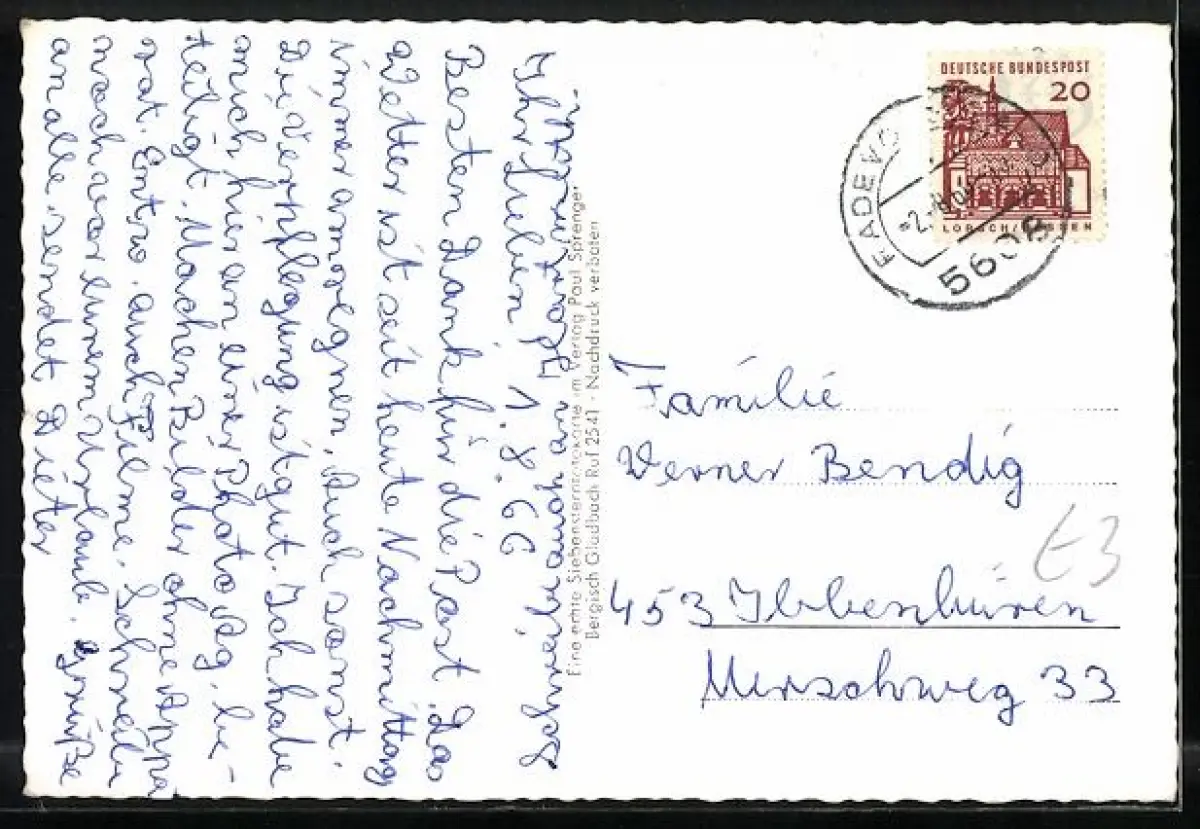 Hüttseifen 1.8.66
Ihr Lieben
Besten Dank für die Post. Das
Wetter ist seit heute Nachmittag
immer am regnen. Auch sonst.
Die Verpflegung ist gut. Ich habe
mich hier an einer Photo Ag. be-
teiligt. Machen Bilder ohne Appa
rat. Entw. auch Filme. Schreibe
noch vor einem Urlaub. Grüße
an alle sendet Dieter
Schreibt auch an
Eine echte Siebensternfotokarte im Verlag Paul Sprenger
Bergisch Gladbach Ruf 2541 - Nachdruck verboten
DEUTSCHE BUNDESPOST
20
LORSCH/HESSEN
RADEVO
5608
Familie
Werner Bendig
453 Ibbenbüren
Merschweg 33
E3